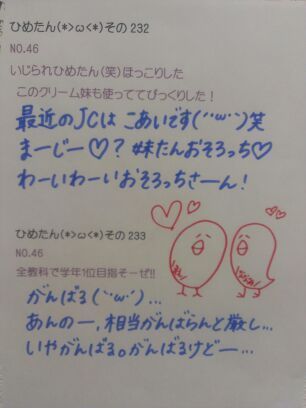 ひめたん(*>ω<*)その232
NO.46
いじられひめたん(笑)ほっこりした
このクリーム妹も使っててびっくりした!
最近のJCは こあいです(´･ω･`)笑
まーじー♡? 妹たんおそろっち♡
わーいわーいおそろっちさーん!
ひめたん(*>ω<*)その233
NO.46
全教科で学年1位目指そーぜ!!
がんばる(´･ω･`)...
あんのー,相当がんばらんと厳し...
いやがんばる。がんばるけどー...